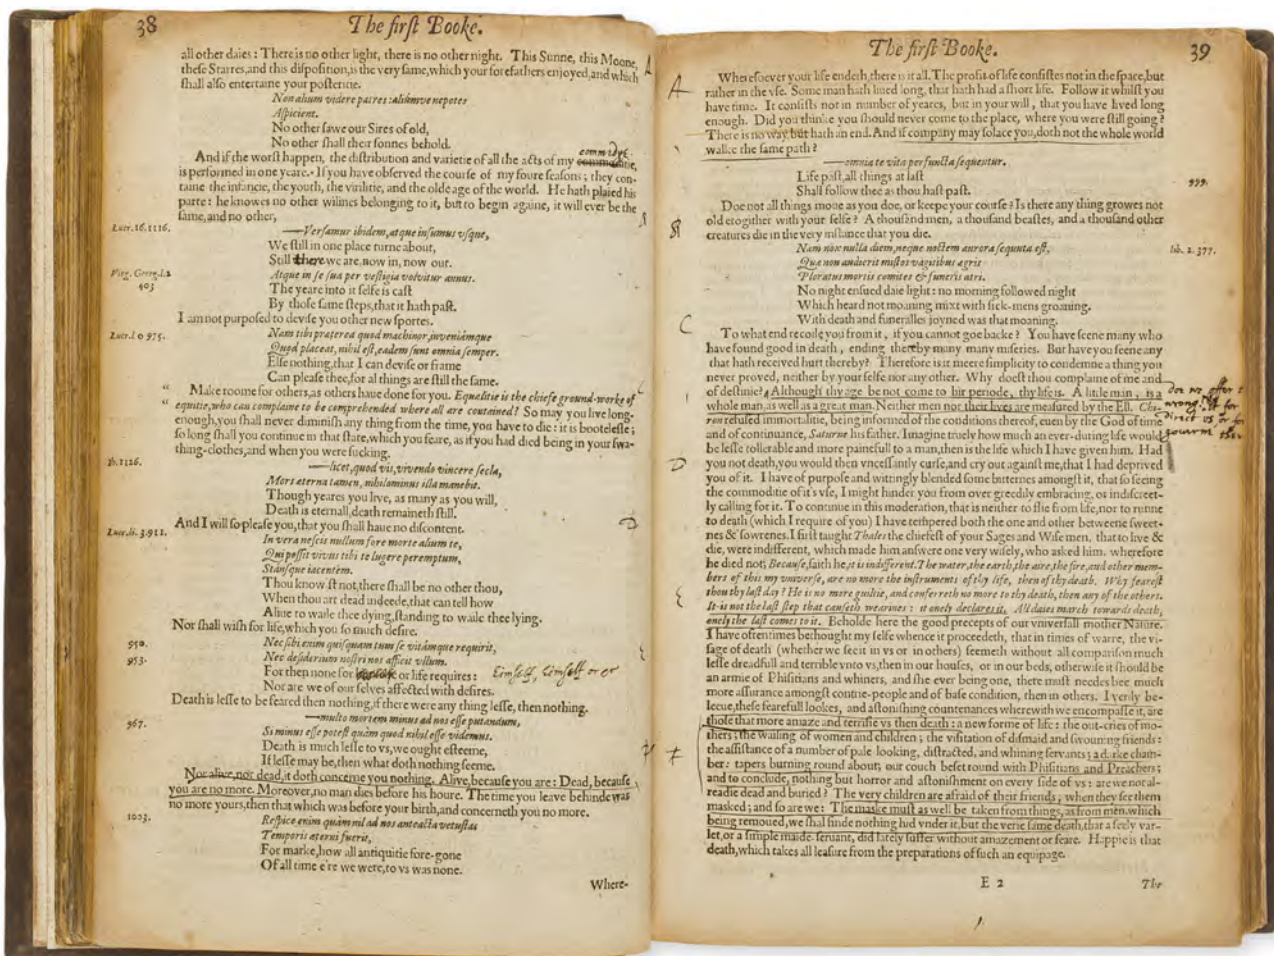 38
The firſt Booke.
all other daies: There is no other light, there is no other night. This Sunne, this Moone,
theſe Starres, and this diſpoſition, is the very ſame, which your forefathers enjoyed, and which
ſhall alſo entertaine your poſteritie.
Non alium videre patres: aliúmve nepotes
Aſpicient.
No other ſawe our Sires of old,
No other ſhall their ſonnes behold.
And if the worſt happen, the diſtribution and varietie of all the acts of my
is performed in one yeare. If you have obſerved the courſe of my foure ſeaſons; they con-
taine the infancie, the youth, the virilitie, and the olde age of the world. He hath plaied his
parte: he knowes no other wilines belonging to it, but to begin againe, it will ever be the
ſame, and no other,
Lucr. 16.1116.
—Verſamur ibidem, atque inſumus vſque,
We ſtill in one place turne about,
Still there we are, now in, now our.
Virg. Georg. l.2
403
Atque in ſe ſua per veſtigia volvitur annus.
The yeare into it ſelfe is caſt
By thoſe ſame ſteps, that it hath paſt.
I am not purpoſed to deviſe you other new ſportes.
Lucr. l. o 975.
Nam tibi praterea quod machinor, inveniámque
Quod placeat, nihil eſt, eadem ſunt omnia ſemper.
Elſe nothing, that I can deviſe or frame
Can pleaſe thee, for al things are ſtill the ſame.
“ Make roome for others, as others haue done for you. Equalitie is the chiefe ground-worke of
“ equitie, who can complaine to be comprehended where all are contained? So may you live long-
enough, you ſhall never diminiſh any thing from the time, you have to die: it is booteleſſe;
ſo long ſhall you continue in that ſtate, which you feare, as if you had died being in your ſwa-
thing-clothes, and when you were ſucking.
Ib. 1126.
—licet, quod vis, vivendo vincere ſecla,
Mors aterna tamen, nihilominus illa manebit.
Though yeares you live, as many as you will,
Death is eternall, death remaineth ſtill.
And I will ſo pleaſe you, that you ſhall haue no diſcontent.
Lucr. li. 3.911.
In vera neſcis nullum fore morte alium te,
Qui poſſit vivus tibi te lugere peremptum,
Stánſque iacentem.
Thou know ſt not, there ſhall be no other thou,
When thou art dead indeede, that can tell how
Aliue to waile thee dying, ſtanding to waile thee lying.
Nor ſhall wiſh for life, which you ſo much deſire.
950.
Nec ſibi enim quiſquam tum ſe vitámque requirit,
953.
Nec deſiderium noſtri nos afficit vllum.
For then none for or life requires:
Nor are we of our ſelves affected with deſires.
Death is leſſe to be feared then nothing, if there were any thing leſſe, then nothing.
967.
—multo mortem minus ad nos eſſe putandum,
Si minus eſſe poteſt quàm quod nihil eſſe videmus.
Death is much leſſe to vs, we ought eſteeme,
If leſſe may be, then what doth nothing ſeeme.
Nor alive, nor dead, it doth concerne you nothing. Alive, becauſe you are: Dead, becauſe
you are no more. Moreover, no man dies before his houre. The time you leave behinde was
no more yours, then that which was before your birth, and concerneth you no more.
1003.
Reſpice enim quàm nil ad nos anteacta vetuſtas
Temporis aterni fuerit,
For marke, how all antiquitie fore-gone
Of all time e're we were, to vs was none.
Where-
The firſt Booke.
39
Whereſoever your life endeth, there is it all. The profit of life conſiſtes not in the ſpace, but
rather in the vſe. Some man hath lived long, that hath had a ſhort life. Follow it whilſt you
have time. It conſiſts not in number of yeares, but in your will, that you have lived long
enough. Did you thinke you ſhould never come to the place, where you were ſtill going?
There is no way but hath an end. And if company may ſolace you, doth not the whole world
walke the ſame path?
—omnia te vita perfuncta ſequentur.
Life paſt, all things at laſt
999.
Shall follow thee as thou haſt paſt.
Doe not all things moue as you doe, or keepe your courſe? Is there any thing growes not
old etogither with your ſelfe? A thouſand men, a thouſand beaſtes, and a thouſand other
creatures die in the very inſtance that you die.
Nam nox nulla diem, neque noctem aurora ſequuta eſt,
lib. 2. 377.
Quæ non audierit miſtos vagitibus agris
Ploratus mortis comites & funeris atri.
No night enſued daie light: no morning followed night
Which heard not moaning mixt with ſick-mens groaning,
With death and funeralles joyned was that moaning.
To what end recoile you from it, if you cannot goe backe? You have ſeene many who
have found good in death, ending thereby many many miſeries. But have you ſeene any
that hath received hurt thereby? Therefore is it meere ſimplicity to condemne a thing you
never proved, neither by your ſelfe nor any other. Why doeſt thou complaine of me and
of deſtinie? Although thy age be not come to hir periode, thy life is. A little man, is a
whole man, as well as a great man. Neither men nor their lives are meaſured by the Ell. Chi-
ron refuſed immortalitie, being informed of the conditions thereof, euen by the God of time
and of continuance, Saturne his father. Imagine truely how much an ever-during life would
be leſſe tollerable and more painefull to a man, then is the life which I have given him. Had
you not death, you would then vnceſſantly curſe, and cry out againſt me, that I had deprived
you of it. I have of purpoſe and wittingly blended ſome bitternes amongſt it, that ſo ſeeing
the commoditie of it's vſe, I might hinder you from over greedily embracing, or indiſcreet-
ly calling for it. To continue in this moderation, that is neither to flie from life, nor to runne
to death (which I require of you) I have tempered both the one and other betweene ſweet-
nes & ſowrenes. I firſt taught Thales the chiefeſt of your Sages and Wiſe men, that to live &
die, were indifferent, which made him anſwere one very wiſely, who asked him, wherefore
he died not; Becauſe, ſaith he, it is indifferent. The water, the earth, the aire, the fire, and other mem-
bers of this my univerſe, are no more the inſtruments of thy life, then of thy death. Why feareſt
thou thy laſt day? He is no more guiltie, and conferreth no more to thy death, then any of the others.
It is not the laſt ſtep that cauſeth wearines: it onely declares it. All daies march towards death,
onely the laſt comes to it. Beholde here the good precepts of our vniverſall mother Nature.
I have oftentimes bethought my ſelfe whence it proceedeth, that in times of warre, the vi-
ſage of death (whether we ſee it in vs or in others) ſeemeth without all compariſon much
leſſe dreadfull and terrible vnto vs, then in our houſes, or in our beds, otherwiſe it ſhould be
an armie of Phiſitians and whiners, and ſhe ever being one, there muſt needes bee much
more aſſurance amongſt contrie-people and of baſe condition, then in others. I verily be-
leeue, theſe fearefull lookes, and aſtoniſhing countenances wherewith we encompaſſe it, are
thoſe that more amaze and terrifie vs then death: a new forme of life: the out-cries of mo-
thers; the wailing of women and children; the viſitation of diſmaid and ſwouning friends:
the aſſiſtance of a number of pale looking, diſtracted, and whining ſervants; a darke cham-
ber: tapers burning round about; our couch beſet round with Phiſitians and Preachers;
and to conclude, nothing but horror and aſtoniſhment on every ſide of vs: are we not al-
readie dead and buried? The very children are afraid of their friends, when they ſee them
masked; and ſo are we: The maske muſt as well be taken from things, as from men, which
being remoued, we ſhal finde nothing hid vnder it, but the verie ſame death, that a ſeely var-
let, or a ſimple maide-ſervant, did lately ſuffer without amazement or feare. Happie is that
death, which takes all leaſure from the preparations of ſuch an equipage.
E 2
The